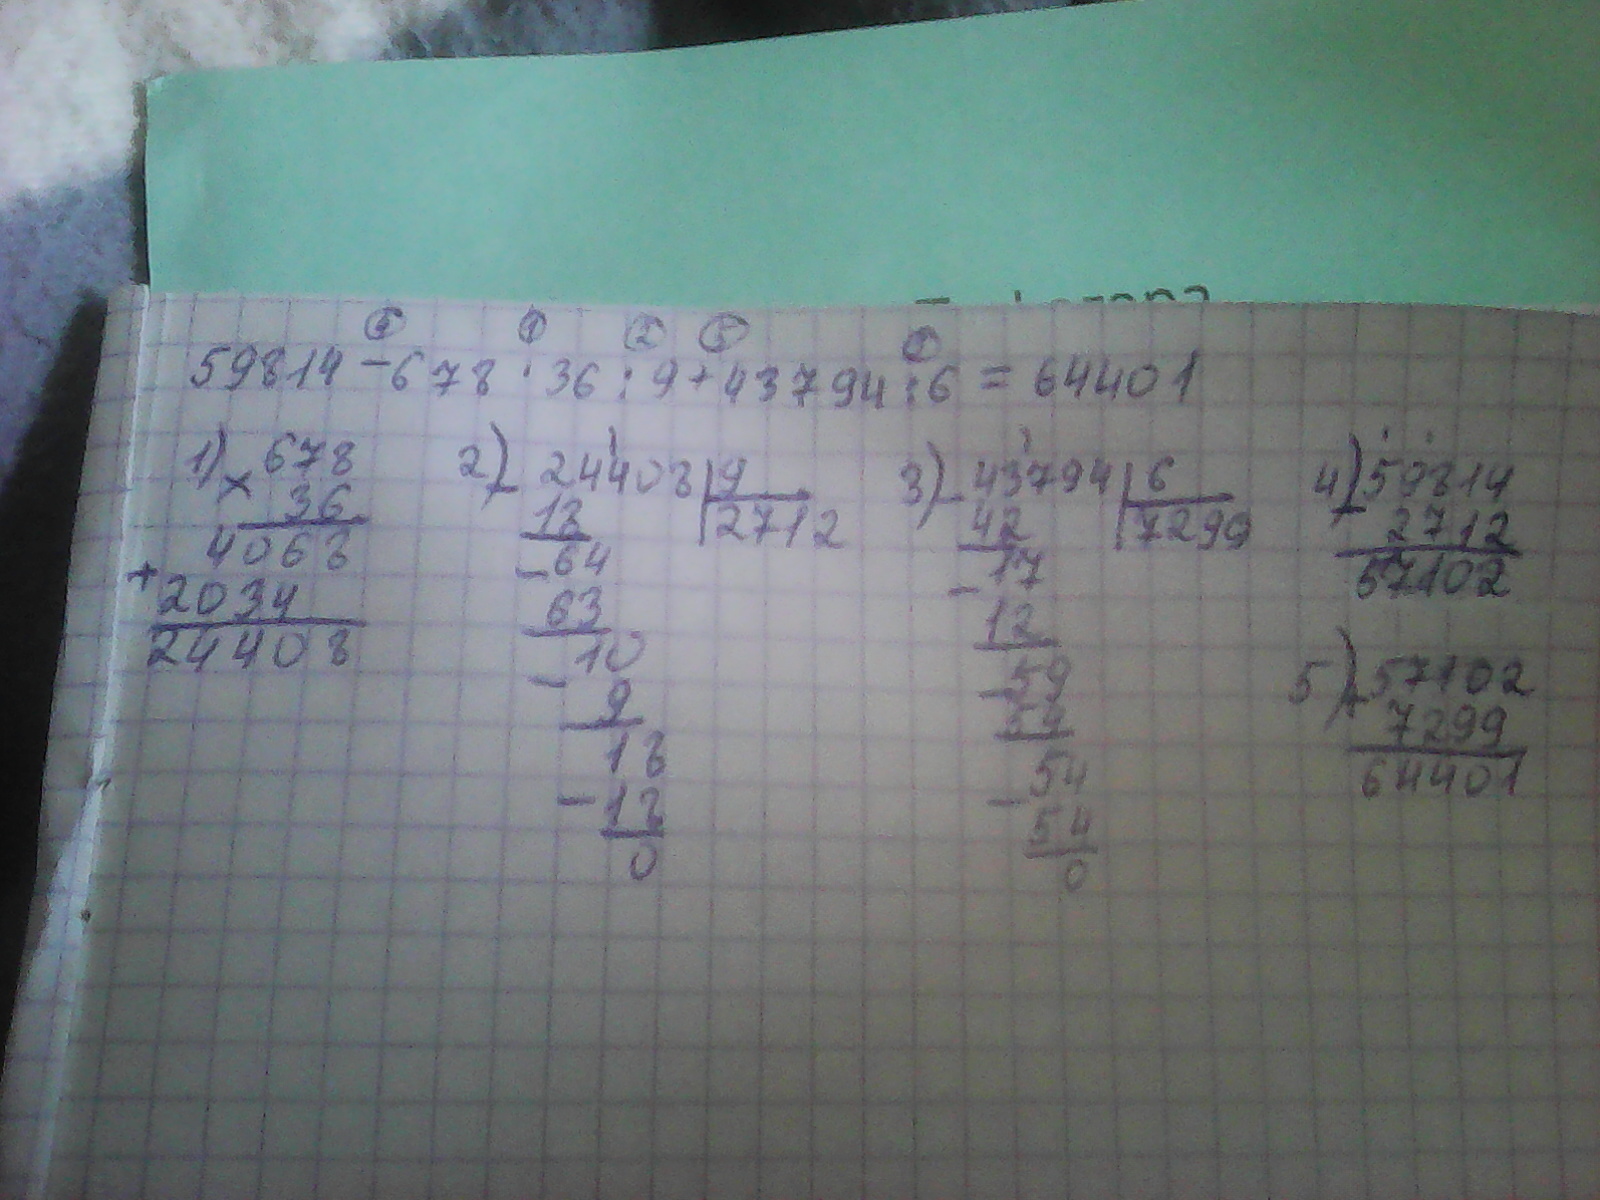 ④ ① ② ⑤ ③
59814 - 678 · 36 : 9 + 43794 : 6 = 64401
1) × 678
36
4068
+ 2034
24408
2) - 24408 | 9
18 2712
- 64
63
- 10
9
18
- 18
0
3) - 43794 | 6
42 7299
- 17
12
- 59
54
54
- 54
0
4) - 59814
2712
57102
5) + 57102
7299
64401